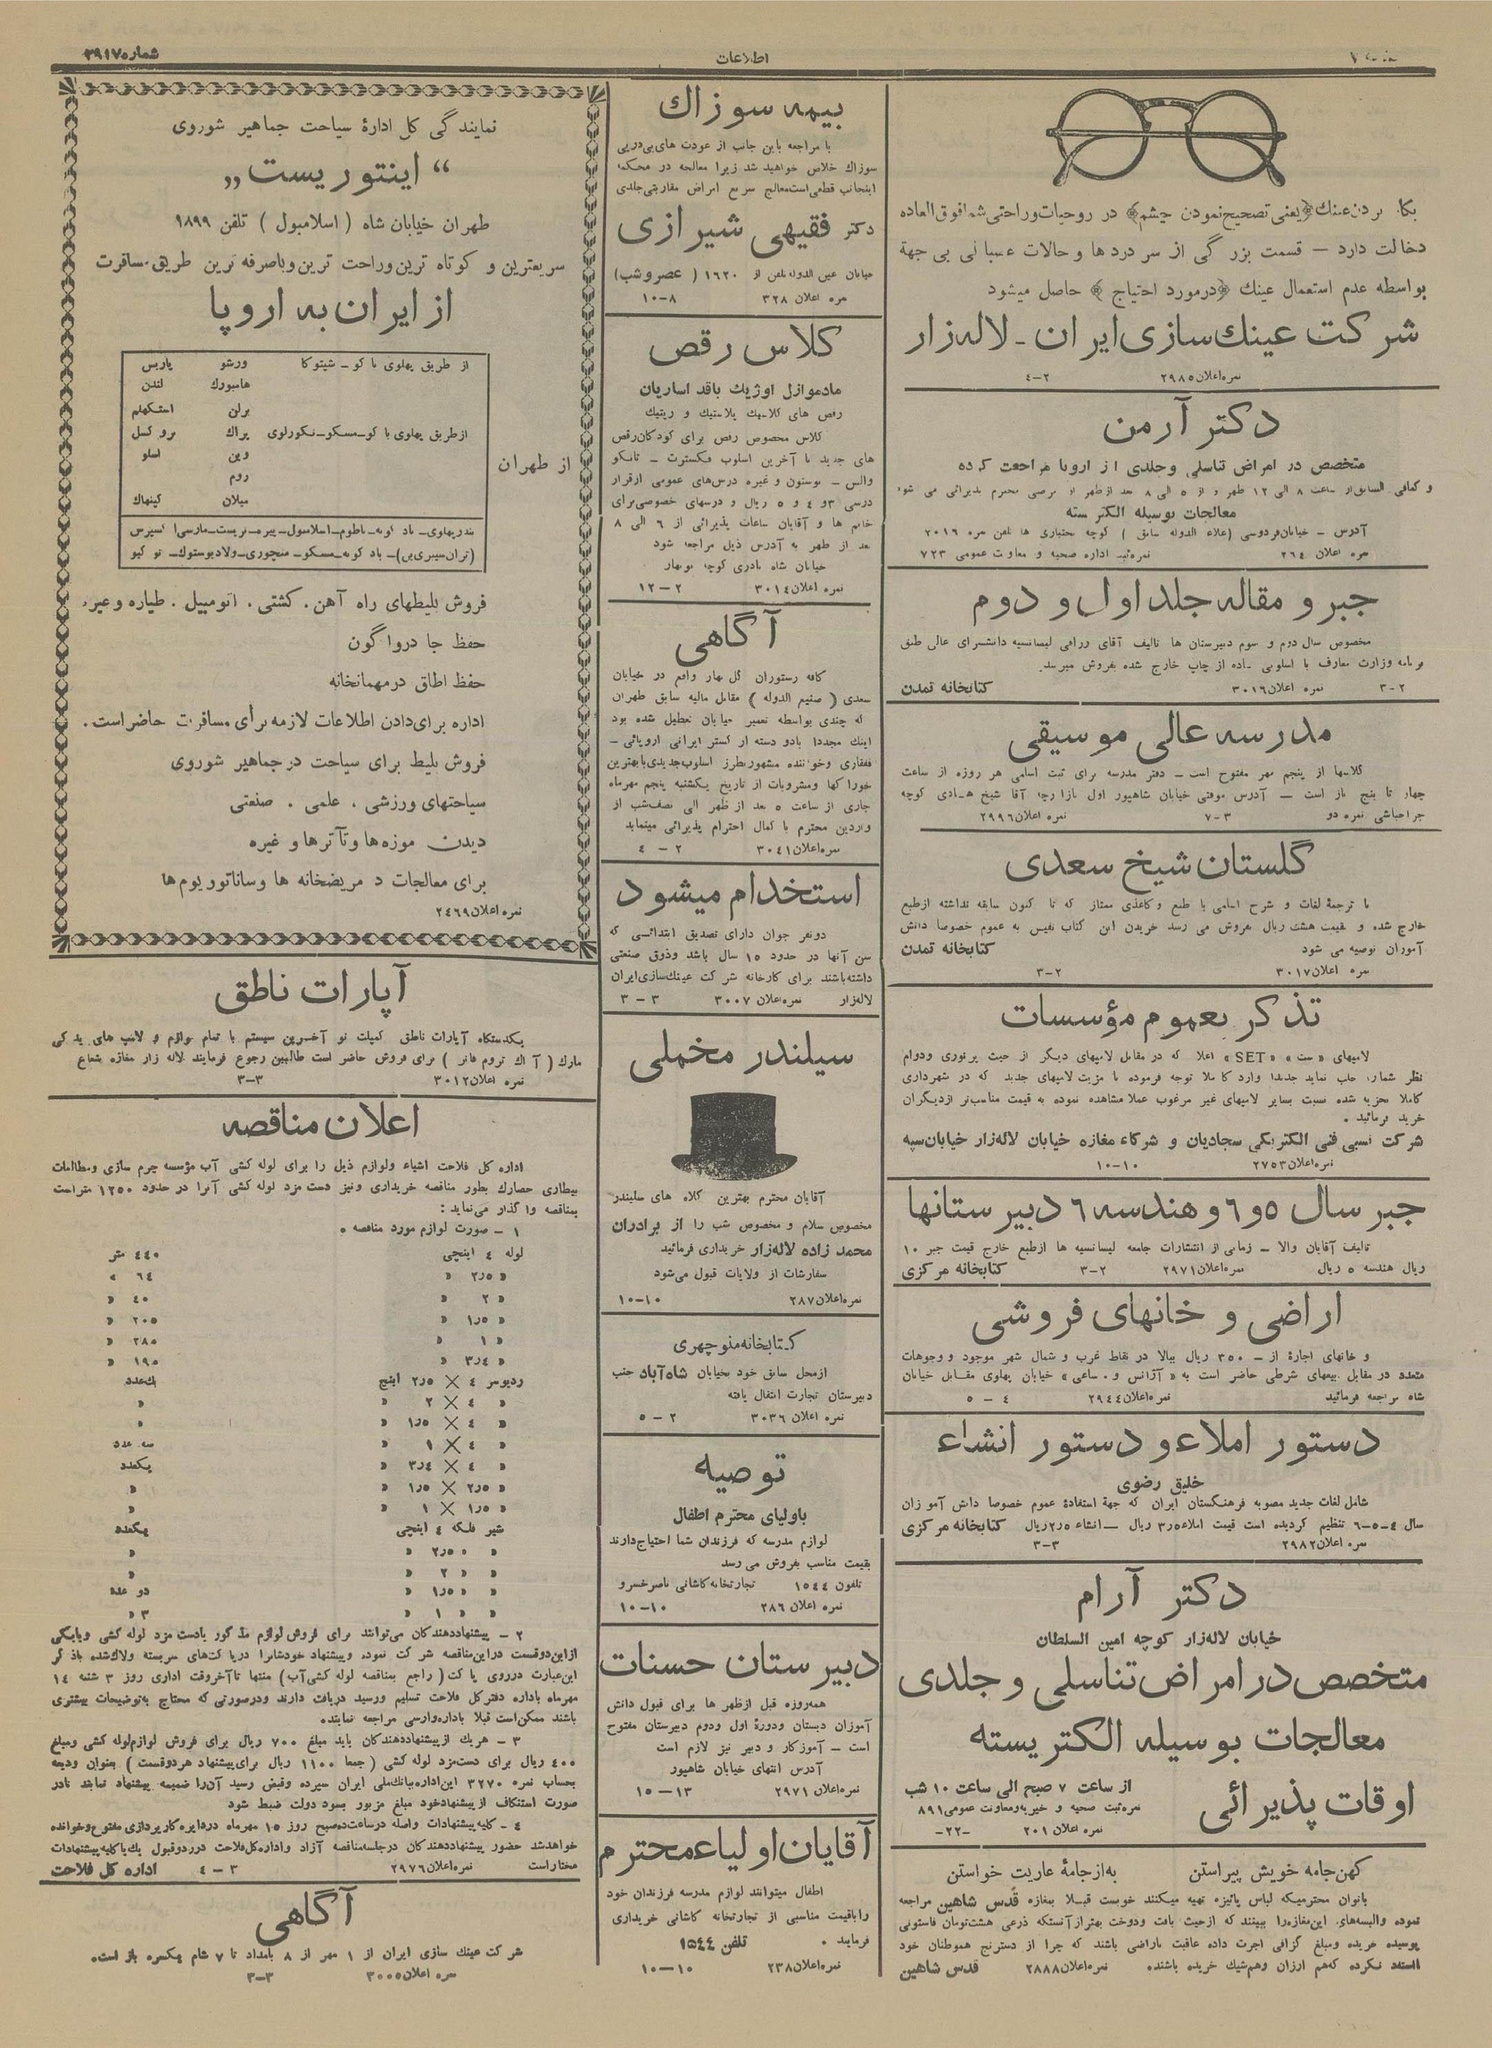 شماره ۳۹۱۷
اطلاعات
بردن عینك «یعنی تصحیح نمودن چشم» در روحیات وراحتی شما فوق العاده
دخالت دارد – قسمت بزرگی از سر دردها و حالات عصبانی بی جهة
بواسطه عدم استعمال عینك «درمورد احتیاج» حاصل میشود
شرکت عینك سازی ایران ـ لاله زار
نمره اعلان ۲۹۸۵ ۲–۴
دکتر آرمن
متخصص در امراض تناسلی وجلدی از اروپا مراجعت کرده
و کمافی السابق از ساعت ۸ الی ۱۲ ظهر و از ۵ الی ۸ بعد ازظهر از مرضی محترم پذیرائی می شود
معالجات بوسیله الکتریسته
آدرس – خیابان فردوسی (علاء الدوله سابق) کوچه بختیاری ها تلفن نمره ۲۰۱۶
نمره اعلان ۲۶۴ نمره ثبت اداره صحیه و معاونت عمومی ۷۲۳
جبر و مقاله جلد اول و دوم
مخصوص سال دوم و سوم دبیرستان ها تالیف آقای لیسانسیه دانشسرای عالی طبق
برنامه وزارت معارف با اسلوبی ساده از چاپ خارج شده بفروش میرسد.
کتابخانه تمدن نمره اعلان ۳۰۱۶ ۲–۳
مدرسه عالی موسیقی
کلاسها از پنجم مهر مفتوح است – دفتر مدرسه برای ثبت اسامی هر روزه از ساعت
چهار تا پنج باز است – آدرس موقتی خیابان شاهپور اول بازارچه آقا شیخ هادی کوچه
جراحباشی نمره دو ۳–۷ نمره اعلان ۲۹۹۶
گلستان شیخ سعدی
با ترجمهٔ لغات و شرح اسامی با طبع و کاغذی ممتاز که تا کنون سابقه نداشته ازطبع
خارج شده و بقیمت هشت ریال بفروش می رسد خریدن این کتاب نفیس به عموم خصوصاً دانش
آموزان توصیه می شود کتابخانه تمدن
نمره اعلان ۳۰۱۷ ۲–۳
تذکر بعموم مؤسسات
لامپهای «ست» «SET» اعلا که در مقابل لامپهای دیگر از حیث پرنوری ودوام
نظر شمارا جلب نماید جدیداً وارد کاملا توجه فرموده با مزیت لامپهای جدید که در شهرداری
کاملا تجزیه شده نسبت بسایر لامپهای غیر مرغوب عملا مشاهده نموده به قیمت مناسب‌تر ازدیگران
خرید فرمائید.
شرکت نسبی فنی الکتریکی سجادیان و شرکاء مغازه خیابان لاله‌زار خیابان سپه
نمره اعلان ۲۷۵۳ ۱۰–۱۰
جبر سال ۵ و ۶ و هندسه ۶ دبیرستانها
تالیف آقایان والا – زمانی از انتشارات جامعه لیسانسیه ها ازطبع خارج قیمت جبر ۱۰
ریال هندسه ۵ ریال نمره اعلان ۲۹۷۱ ۲–۳ کتابخانه مرکزی
اراضی و خانهای فروشی
و خانهای اجارهٔ از – ۳۵۰ ریال ببالا در نقاط غرب و شمال شهر موجود و وجوهات
متعدد در مقابل بیعهای شرطی حاضر است به «آژانس و. ساعی» خیابان پهلوی مقابل خیابان
شاه مراجعه فرمائید نمره اعلان ۲۹۴۴ ۴–۵
دستور املاء و دستور انشاء
خلیق رضوی
شامل لغات جدید مصوبه فرهنگستان ایران که جهة استفادهٔ عموم خصوصاً دانش آموزان
سال ۴-۵-۶ تنظیم گردیده است قیمت املاء ۳٫۵ ریال – انشاء ۲٫۵ ریال کتابخانه مرکزی
نمره اعلان ۲۹۸۲ ۳–۳
دکتر آرام
خیابان لاله‌زار کوچه امین السلطان
متخصص در امراض تناسلی و جلدی
معالجات بوسیله الکتریسته
اوقات پذیرائی
از ساعت ۷ صبح الی ساعت ۱۰ شب
نمره ثبت صحیه و خیریه ومعاونت عمومی ۸۹۱
نمره اعلان ۲۰۱ –۲۲–
کهن جامه خویش پیراستن به از جامهٔ عاریت خواستن
بانوان محترمیکه لباس پائیزه تهیه میکنند خوبست قبلا بمغازه قدس شاهین مراجعه
نموده والبسه‌های این مغازه را ببینند که ازحیث بافت ودوخت بهتر از آنستکه ذرعی هشت تومان فاستونی
پوسیده خریده ومبلغ گزافی اجرت داده عاقبت ناراضی باشند که چرا از دسترنج هموطنان خود
استفاده نکرده که هم ارزان وهم شیك خریده باشند. نمره اعلان ۲۸۸۸ قدس شاهین
بیمه سوزاك
با مراجعه باین جانب از عودت های پی‌درپی
سوزاك خلاص خواهید شد زیرا معالجه در محکمه
اینجانب قطعی است معالج سریع امراض مقاربتی جلدی
دکتر فقیهی شیرازی
خیابان عین الدوله تلفن از ۱۶۲۰ (عصر وشب)
نمره اعلان ۳۲۸ ۸–۱۰
کلاس رقص
مادموازل اوژیك باقد اساریان
رقص های کلاسیك پلاستیك و ریتمیك
کلاس مخصوص رقص برای کودکان رقص
های جدید با آخرین اسلوب فکسترت – تانگو
والس – بوستون و غیره درس‌های عمومی ازقرار
درسی ۳ و ۴ و ۵ ریال و درسهای خصوصی برای
خانم ها و آقایان ساعات پذیرائی از ۶ الی ۸
بعد از ظهر به آدرس ذیل مراجعه شود
خیابان شاه نادری کوچه نوبهار
نمره اعلان ۳۰۱۴ ۲–۱۲
آگاهی
کافه رستوران گل بهار واقع در خیابان
سعدی (صنیع الدوله) مقابل مالیه سابق طهران
که چندی بواسطه تعمیر خیابان تعطیل شده بود
اینك مجدداً بادو دسته ارکستر ایرانی اروپائی –
قفقازی وخواننده مشهور بطرز اسلوب جدیدی با بهترین
خوراکها ومشروبات از تاریخ یکشنبه پنجم مهرماه
جاری از ساعت ۵ بعد از ظهر الی نصف شب از
واردین محترم با کمال احترام پذیرائی مینماید
نمره اعلان ۳۰۴۱ ۲–۴
استخدام میشود
دونفر جوان دارای تصدیق ابتدائی که
سن آنها در حدود ۱۵ سال باشد وذوق صنعتی
داشته‌باشند برای کارخانه شرکت عینك سازی ایران
لاله‌زار نمره اعلان ۳۰۰۷ ۳–۳
سیلندر مخملی
آقایان محترم بهترین کلاه های سلیندر
مخصوص سلام و مخصوص شب را از برادران
محمد زاده لاله‌زار خریداری فرمائید
سفارشات از ولایات قبول می‌شود
نمره اعلان ۲۸۷ ۱۰–۱۰
کتابخانه منوچهری
ازمحل سابق خود بخیابان شاه‌آباد جنب
دبیرستان تجارت انتقال یافته
نمره اعلان ۳۰۳۶ ۲–۵
توصیه
باولیای محترم اطفال
لوازم مدرسه که فرزندان شما احتیاج دارند
بقیمت مناسب بفروش می رسد
تلفون ۱۵۴۴ تجارتخانه کاشانی ناصرخسرو
نمره اعلان ۲۸۶ ۱۰–۱۰
دبیرستان حسنات
همه‌روزه قبل ازظهر ها برای قبول دانش
آموزان دبستان ودورهٔ اول ودوم دبیرستان مفتوح
است – آموزکار و دبیر نیز لازم است
آدرس انتهای خیابان شاهپور
نمره اعلان ۲۹۷۱ ۱۳–۱۵
آقایان اولیاء محترم
اطفال میتوانند لوازم مدرسه فرزندان خود
را باقیمت مناسبی از تجارتخانه کاشانی خریداری
فرمایند. تلفن ۱۵۴۴
نمره اعلان ۲۳۸ ۱۰–۱۰
نمایندگی کل ادارهٔ سیاحت جماهیر شوروی
“ اینتوریست „
طهران خیابان شاه (اسلامبول) تلفن ۱۸۹۹
سریعترین و کوتاه ترین وراحت ترین وباصرفه ترین طریق مسافرت
از ایران به اروپا
از طهران
از طریق پهلوی باکو – شپتوکا ورشو پاریس
هامبورك لندن
برلن استکهلم
ازطریق پهلوی باکو–مسکو–نگورلوی پراك بروکسل
وین اسلو
روم
میلان کپنهاك
بندرپهلوی–بادکوبه–باطوم–اسلامبول–پیره–تریست–مارسی
(تران‌سیبری‌ین)–بادکوبه–مسکو–منچوری–ولادیوستوك–توکیو
فروش بلیطهای راه آهن. کشتی. اتومبیل. طیاره وغیره
حفظ جا درواگون
حفظ اطاق درمهمانخانه
اداره برای دادن اطلاعات لازمه برأی مسافرت حاضراست.
فروش بلیط برای سیاحت در جماهیر شوروی
سیاحتهای ورزشی. علمی. صنعتی
دیدن موزه ها وتآترها و غیره
برای معالجات در مریضخانه ها وساناتوریوم ها
نمره اعلان ۲۴۶۹
آپارات ناطق
یکدستگاه آپارات ناطق کمپلت نو آخرین سیستم با تمام لوازم و لامپ های یدکی
مارك (آك تروم فانر) برای فروش حاضر است طالبین رجوع فرمایند لاله زار مغازه شعاع
نمره اعلان ۳۰۱۲ ۳–۳
اعلان مناقصه
اداره کل فلاحت اشیاء ولوازم ذیل را برای لوله کشی آب مؤسسه سرم سازی ومطالعات
بیطاری حصارك بطور مناقصه خریداری ونیز دست مزد لوله کشی آنرا در حدود ۱۲۵۰ متراست
بمناقصه واگذار می‌نماید:
۱ – صورت لوازم مورد مناقصه.
لوله ۴ اینچی ۴۴۰ متر
» ۲٫۵ » ۶۴ »
» ۲ » ۴۰ »
» ۱٫۵ » ۲۰۵ »
» ۱ » ۲۸۵ »
» ۳٫۴ » ۱۹۵ »
ردیوسر ۴ × ۲٫۵ اینچ یك عدد
» ۴ × ۲ » »
» ۴ × ۱٫۵ » »
» ۴ × ۱ » سه عدد
» ۴ × ۳٫۴ » یکعدد
» ۲٫۵ × ۱٫۵ » »
» ۱٫۵ × ۱ » »
شیر فلکه ۴ اینچی یکعدد
» » ۲٫۵ » »
» » ۲ » »
» » ۱٫۵ » دو عدد
» » ۱ » ۳ »
۲ – پیشنهاددهندکان می‌توانند برای فروش لوازم مذکور بادست مزد لوله کشی ویابیکی
ازاین دوقسمت دراین مناقصه شرکت نموده وپیشنهاد خودشانرا درپاکت‌های سربسته ولاك‌شده باذکر
این عبارت درروی پاکت (راجع بمناقصه لوله کشی آب) منتها تا آخروقت اداری روز ۳ شنبه ۱۴
مهرماه باداره دفترکل فلاحت تسلیم ورسید دریافت دارند ودرصورتی که محتاج به‌توضیحات بیشتری
باشند ممکن است قبلا باداره وارسی مراجعه نمایند.
۳ – هریك ازپیشنهاددهندکان باید مبلغ ۷۰۰ ریال برای فروش لوازم لوله کشی ومبلغ
۴۰۰ ریال برای دست‌مزد لوله کشی (جمعاً ۱۱۰۰ ریال برای پیشنهاد هردوقسمت) بعنوان ودیعه
بحساب نمره ۳۲۷۰ این اداره ببانك ملی ایران سپرده وقبض رسید آن‌را ضمیمه پیشنهاد نمایند تادر
صورت استنکاف ازپیشنهاد خود مبلغ مزبور بسود دولت ضبط شود
۴ – کلیه پیشنهادات واصله درساعت ده صبح روز ۱۵ مهرماه دردایره کارپردازی مفتوح وخوانده
خواهدشد حضور پیشنهاددهندکان درجلسه مناقصه آزاد واداره کل فلاحت دررد وقبول یك یا کلیه پیشنهادات
مختار است نمره اعلان ۲۹۷۶ ۳–۴ اداره کل فلاحت
آگاهی
شرکت عینك سازی ایران از ۱ مهر از ۸ بامداد تا ۷ شام یکسره باز است.
نمره اعلان ۳۰۰۵ ۳–۳